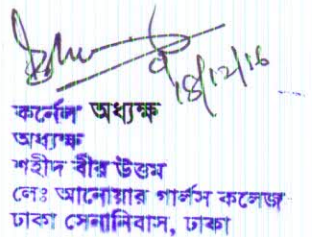 18/12/16
কর্নেল অধ্যক্ষ
অধ্যক্ষ
শহীদ বীর উত্তম
লেঃ আনোয়ার গার্লস কলেজ
ঢাকা সেনানিবাস, ঢাকা